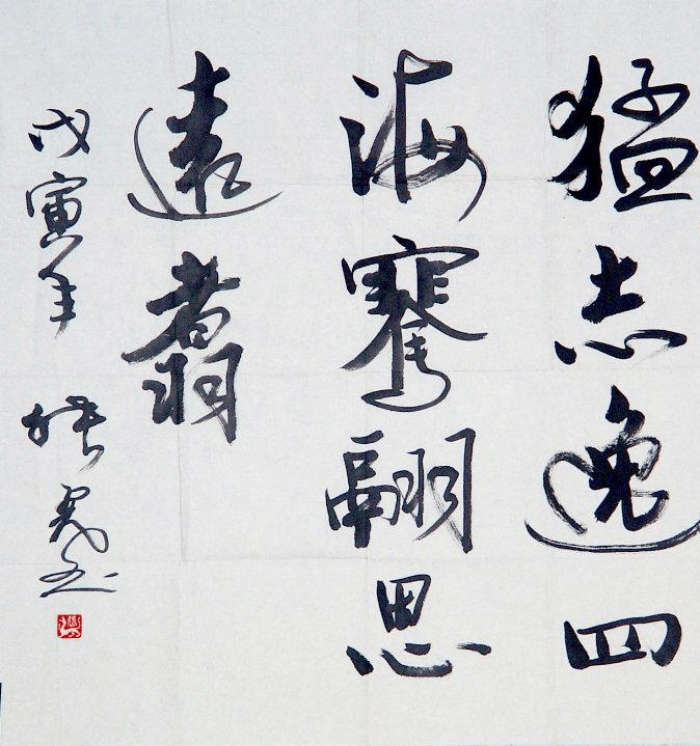 猛志逸四
海騫翮思
遠翥
戊寅年